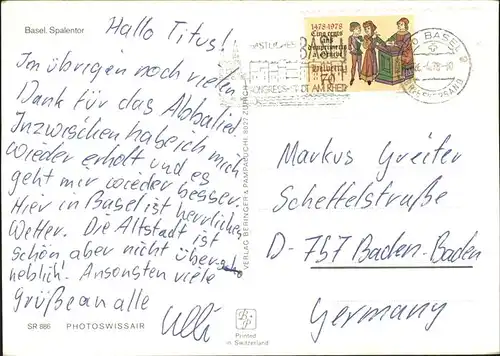 Basel. Spalentor
Hallo Titus!
Im übrigen noch vielen
Dank für das Abbalied.
Inzwischen habe ich mich
wieder erholt und es
geht mir wieder besser.
Hier in Basel ist herrliches
Wetter. Die Altstadt ist
schön aber nicht über-
heblich. Ansonsten viele
Grüße an alle
Ulli
SR 886 PHOTOSWISSAIR
VERLAG BERINGER & PAMPALUCHI, 8027 ZÜRICH
Printed
in Switzerland
1478-1978
Cinq cents
ans
d'imprimerie
à Genève
helvetia
70
BASEL
KONGRESS-STADT
AM RHEIN
BASEL
Markus Greiter
Scheffelstraße
D-757 Baden-Baden
Germany